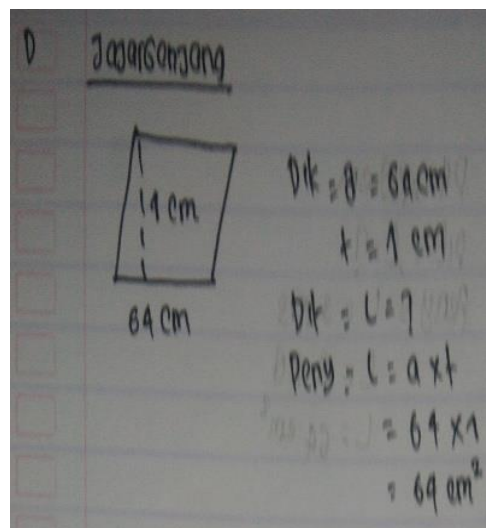 D Jajargenjang
1 cm
64 cm
Dik = a = 64 cm
t = 1 cm
Dit = L = ?
Peny = L = a x t
= 64 x 1
= 64 cm²